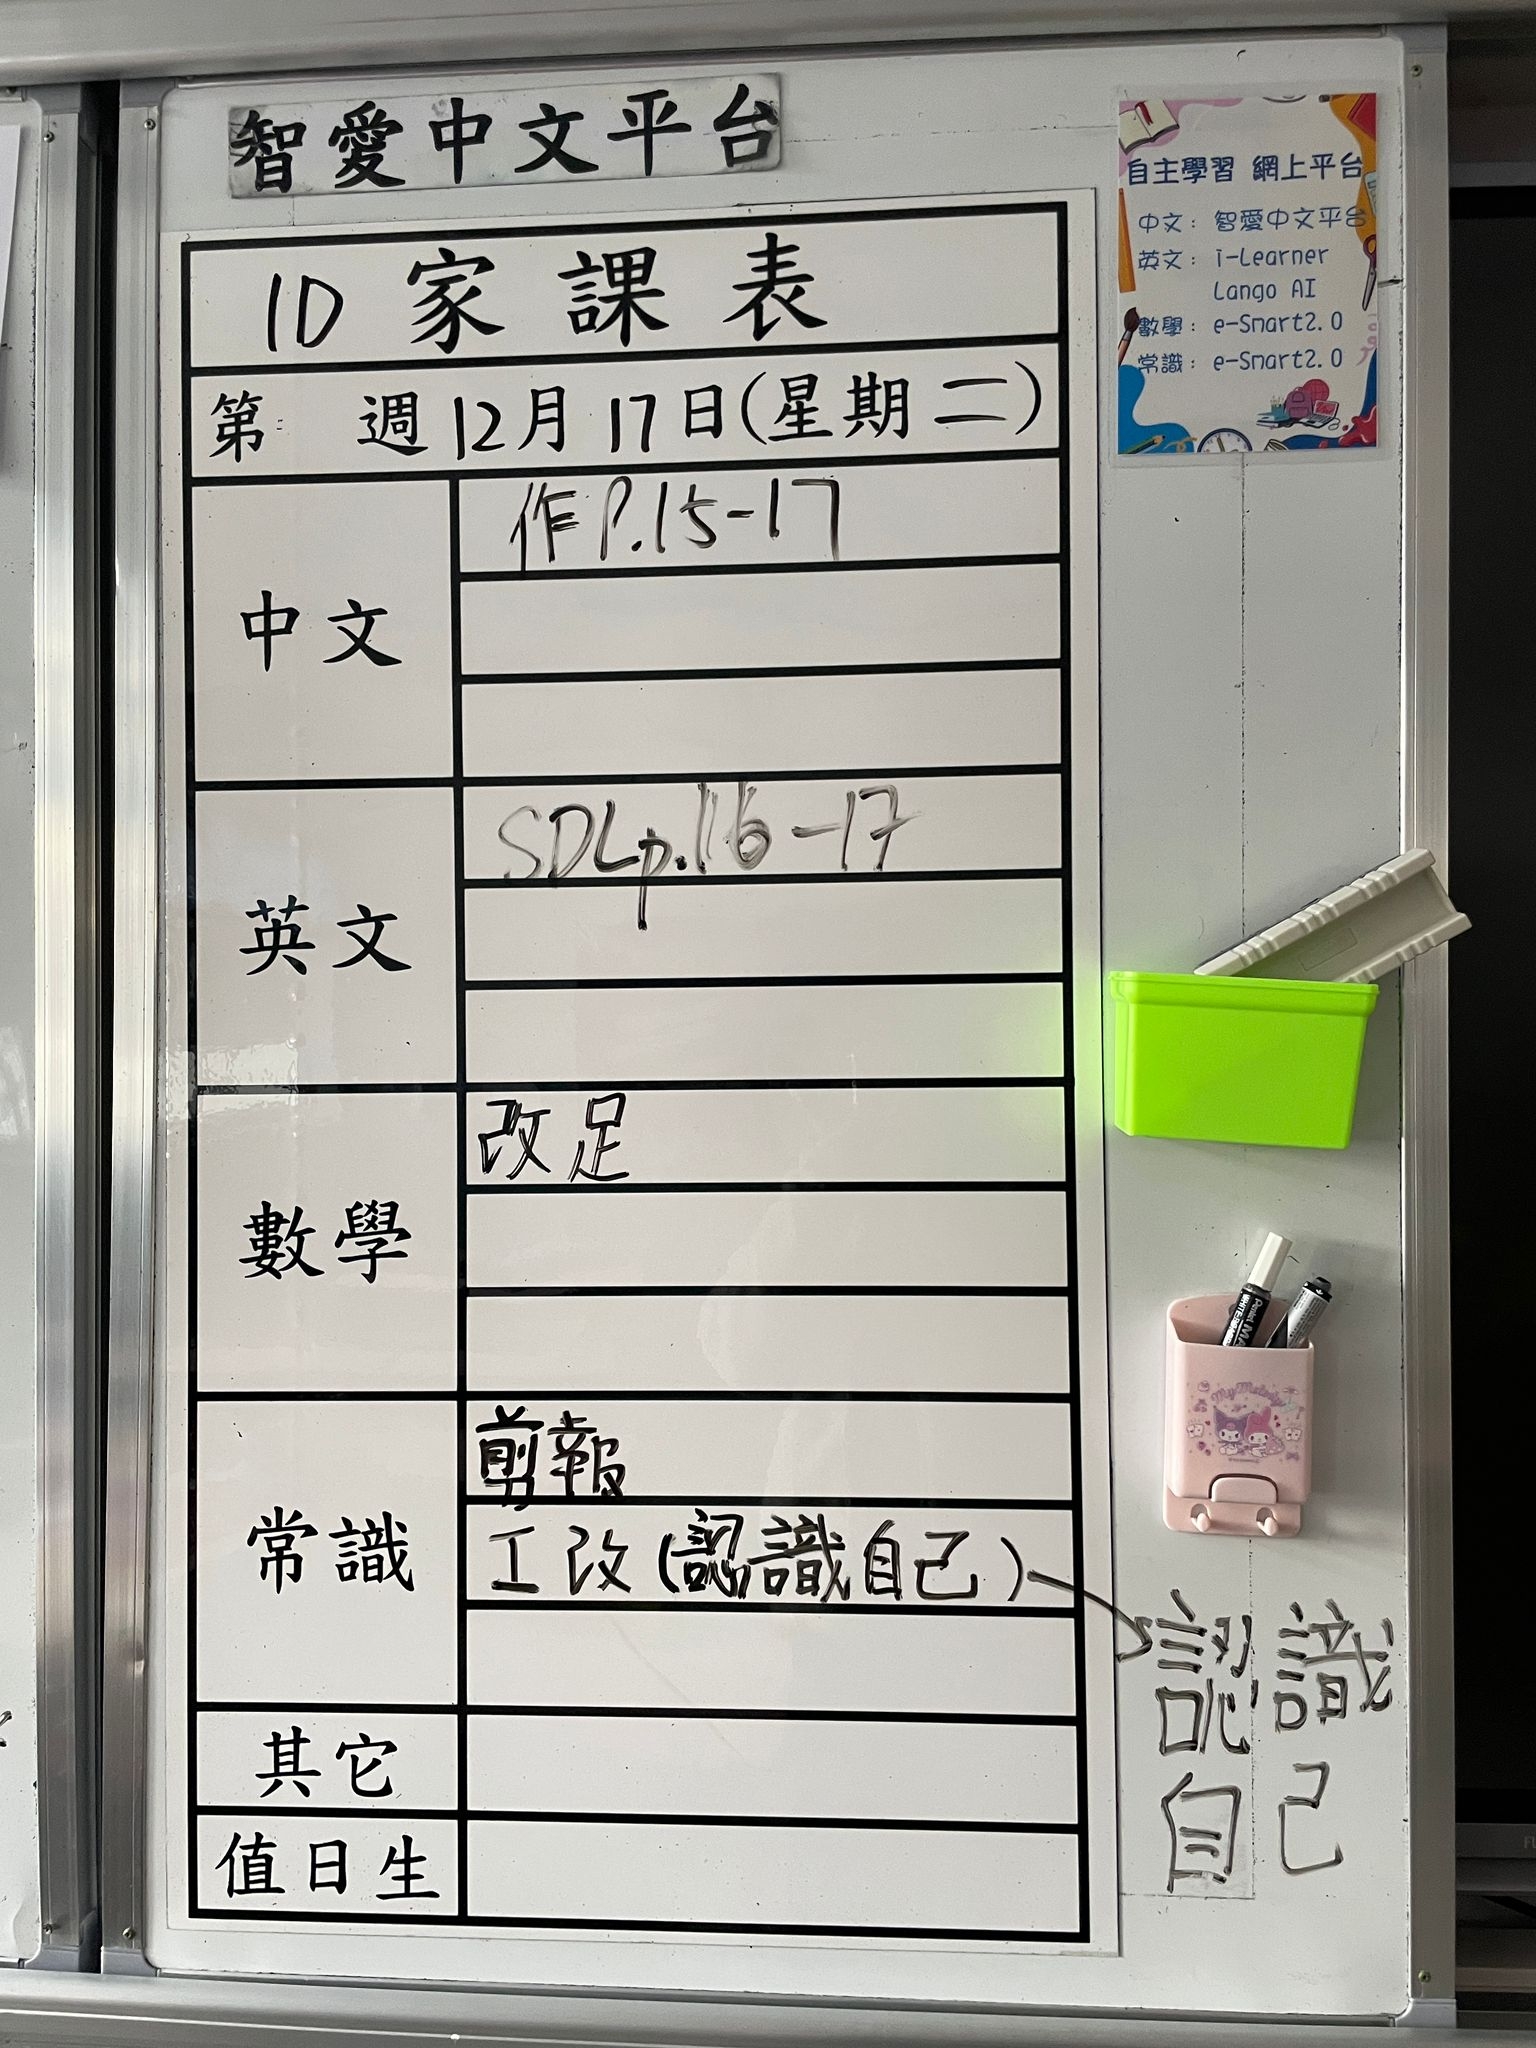 智愛中文平台
1D 家課表
第 週 12月 17日(星期二)
中文
作P.15-17
英文
SDL p.116-17
數學
改足
常識
剪報
工改(認識自己)
認識
自己
其它
值日生
自主學習 網上平台
中文: 智愛中文平台
英文: i-Learner
Lango AI
數學: e-Smart2.0
常識: e-Smart2.0
My Melody
Pentel